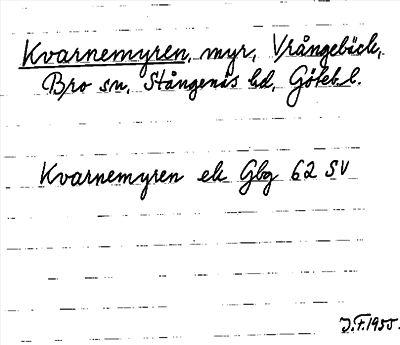 Kvarnemyren, myr, Vrångebäck,
Bro sn, Stångenäs hd, Göteb. l.
Kvarnemyren ek Gbg 62 SV
J.F. 1955.